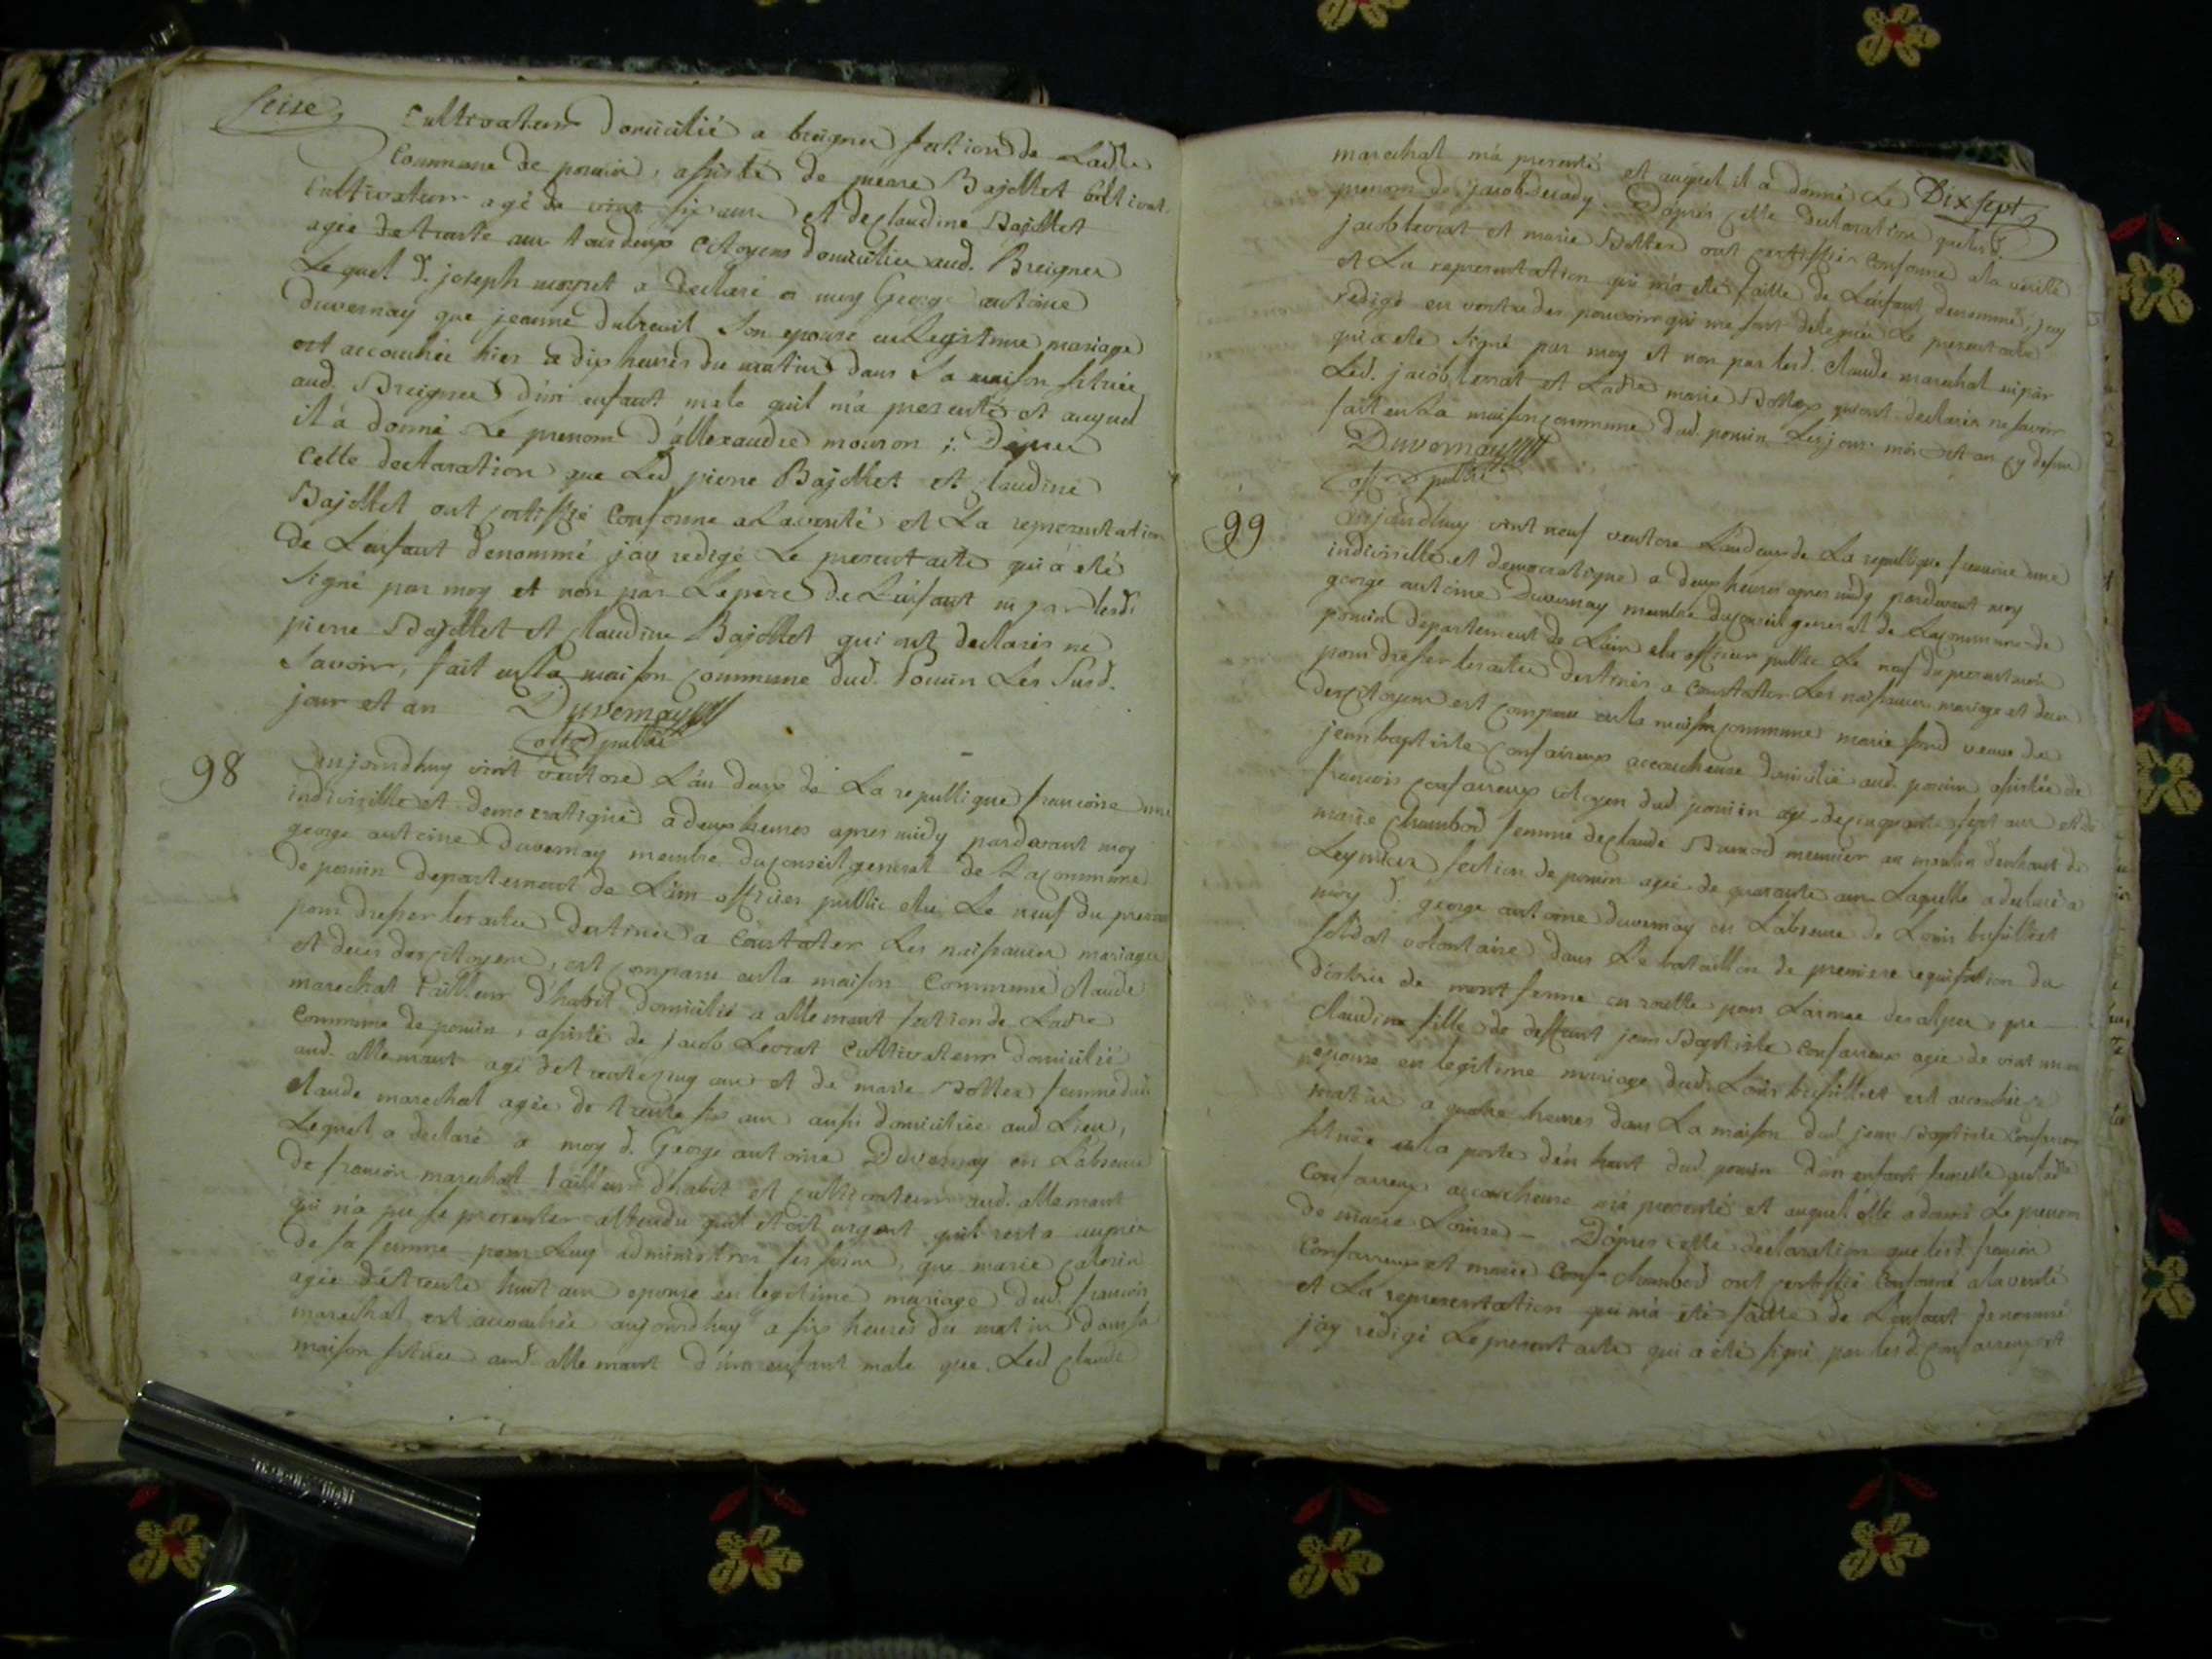 seize
Cultivateur domicilié a breignes section de Ladte
Commune de poncin, assisté de pierre Bajollet
Cultivateur agé de vint six ans et de claudine Bajollet
agée de trante ans tous deux Citoyens domiciliés aud. Breignes
Lequel d. joseph a declaré a moy George antoine
duvernay que jeanne dubreuil son epouse en Legitime mariage
est accouchée hier a dix heures du matin dans sa maison située
aud. Breignes d'un enfant male quil m'a presenté et auquel
il a donné Le prenom d'allexandre mouron ; Dapres
Cette declaration que Led pierre Bajollet et claudine
Bajollet ont certiffié Conforme a La verité et La representation
de Lenfant denommé jay redigé Le present acte qui a été
signé par moy et non par Le pere de Lenfant ni par lesd.
pierre Bajollet et claudine Bajollet qui ont declarés ne
savoir, fait en la maison commune dud. Poncin Les susd.
jour et an Duvernay
off. public
98
aujourdhuy vint ventose L'an deux de La republique francoise une
indivisible et democratique a deux heures apres midy pardevant moy
george antoine duvernay membre du conseil general de La commune
de poncin departement de L'ain officier public elu Le neuf du present
pour dresser les actes destinés a Constater Les naissances mariages
et decés des citoyens, est comparu en la maison Commune Claude
marechal tailleur d'habit domicilié a allemant section de Ladte
Commune de poncin, assisté de jacob Levrat Cultivateur domicilié
aud. allemant agé de trente cinq ans et de marie Bottex femme dud
claude marechal agée de trente six ans aussi domiciliée aud. Lieu,
Lequel a declaré a moy d. George antoine Duvernay en L'absence
de francois marechal tailleur d'habit et cultivateur aud. allemant
qui n'a pu se presenter attendu quil etoit urgent quil resta aupres
de sa femme pour Luy administrer ses soins, que marie
agée de trente huit ans epouse en legitime mariage dud. francois
marechal est accouchée aujourdhuy a six heures du matin dans sa
maison située aud. allemant d'un enfant male que Led claude
Dix sept
marechal m'a presenté et auquel il a donné Le
prenom de jacob decady. D'apres cette declaration que lesd.
jacob levrat et marie Bottex ont certiffiés Conforme a la verité
et La representation qui m'a eté faitte de Lenfant denommé, j'ay
redigé en vertu des pouvoirs qui me sont delegués Le present acte
qui a ete signé par moy et non par led. Claude marechal ni par
Led. jacob levrat et Ladte marie Bottex qui ont declarés ne savoir
fait en La maison commune dud. poncin Les jour mois et an cy dessus
Duvernay
off. public
99
aujourdhuy vint neuf ventose L'an deux de La republique francoise une
indivisible et democratique a deux heures apres midy pardevant moy
george antoine Duvernay membre du conseil general de La commune de
poncin departement de Lain elu officier public Le neuf du present mois
pour dresser les actes destinés a Constater Les naissances mariage et deces
des citoyens est comparue en la maison commune marie veuve de
jean baptiste Confarreux accoucheuse domicilié aud. poncin assistée de
francois confarreux citoyen dud. poncin agé de cinquante sept ans et de
marie chambod femme de claude meunier au moulin d'enhaut de
Leymiat section de poncin agée de quarante ans Laquelle a declaré a
moy d. george antoine duvernay en L'absence de Louis
soldat volontaire dans Le bataillon de premiere requisition du
district de mont ferme en routte pour L'armée des alpes, que
Claudine fille de deffunt jean Baptiste Confarreux agée de vint un an
epouse en legitime mariage dud. Louis est accouchée ce
matin a quatre heures dans La maison dud jean Baptiste Confarreux
située en la porte d'en haut dud. poncin d'un enfant femelle que ladte
Confarreux accoucheuse m'a presenté et auquel elle a donné Le prenom
de marie Louise - D'apres cette declaration que lesd francois
Confarreux et marie Conf chambod ont certiffié Conforme a la verité
et La representation qui m'a eté faitte de L'enfant denommé
j'ay redigé Le present acte qui a eté signé par led. confarreux et